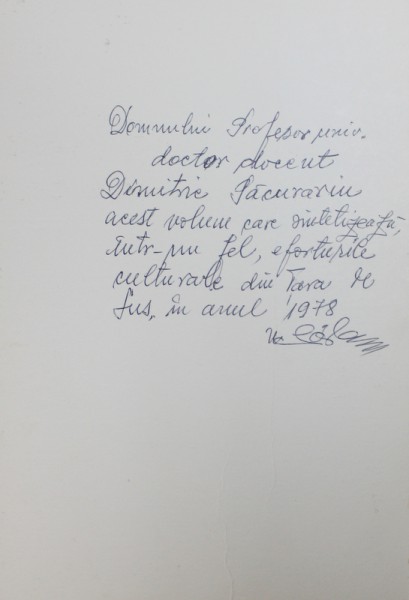 Domnului Profesor univ.
doctor docent
Dimitrie Păcurariu
acest volum care sintetizează,
într-un fel, eforturile
culturale din Țara de
Sus, în anul 1978